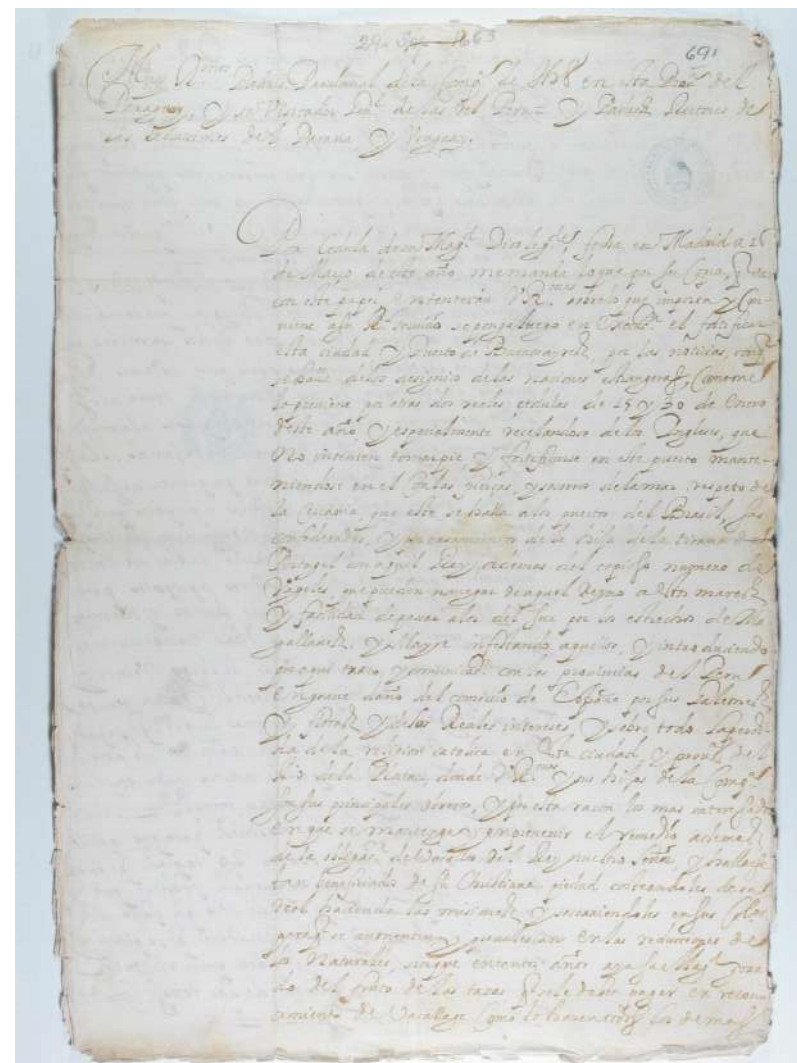 29 Sep 1663
691
Muy Rdos Padres Provincial de la Compª de JHS en esta Provª del
Paraguay, y su Visitador de las del Peru y Padres Retores de
las Reduciones del Parana y Uruguay.
Por Cedula de su Magd fecha en Madrid a 26
de Mayo de este año, me manda lo que por su Copia, que va
con este papel entenderan V Rmas sobre lo que importa y con
viene a su Rl servicio se ponga luego en el fortificar
esta ciudad y Puerto de Buenos ayres por las noticias con que
se halla de los designios de las naciones estrangeras, como me
lo previene por otras dos reales cedulas de 15 y 30 de Enero
deste año y especialmente recelandose de los Ingleses, que
no intenten tomar pie y fortificarse en este puerto mante
niendose en el y socorros de la mar, respeto de
la cercania que este se halla a los puertos del Brasil, sus
confederados, y por casamiento de la hija de la tirana de
Portugal con aquel Rey, ademas del copioso numero de
Vageles, que pueden navegar de aquel Reyno a estos mares
y facilidad de pasar a los del Sur por los estrechos de Ma
gallanes y Mayre infestando aquellos, y introduciendo
en aqui trato y comunicacⁿ con las provincias del Peru
en grave daño del comercio de España por sus Galeones
y flotas y de los Reales intereses, y sobre todo la perdi
da de la religion catolica en esta ciudad, y provªs del
Rio de la Plata, donde V Rmas y sus hijos de la Compª
son sus principales obreros, y por esta razon los mas interesados
en que se mantenga y en prevenir el remedio ademas
de la obligacⁿ de Vasallos del Rey nuestro Señor, y hallarse
tan beneficiados de su Christiana piedad costeandoles de su
real hacienda las misiones y socorriendoles en sus
para que se aumenten y prevalescan en las reduciones de
los Naturales, sin que en tantos años aya su Magd
do del fruto de las tasas que le deven pagar en recono
cimiento de Vasallage como lo hacen todos los demas